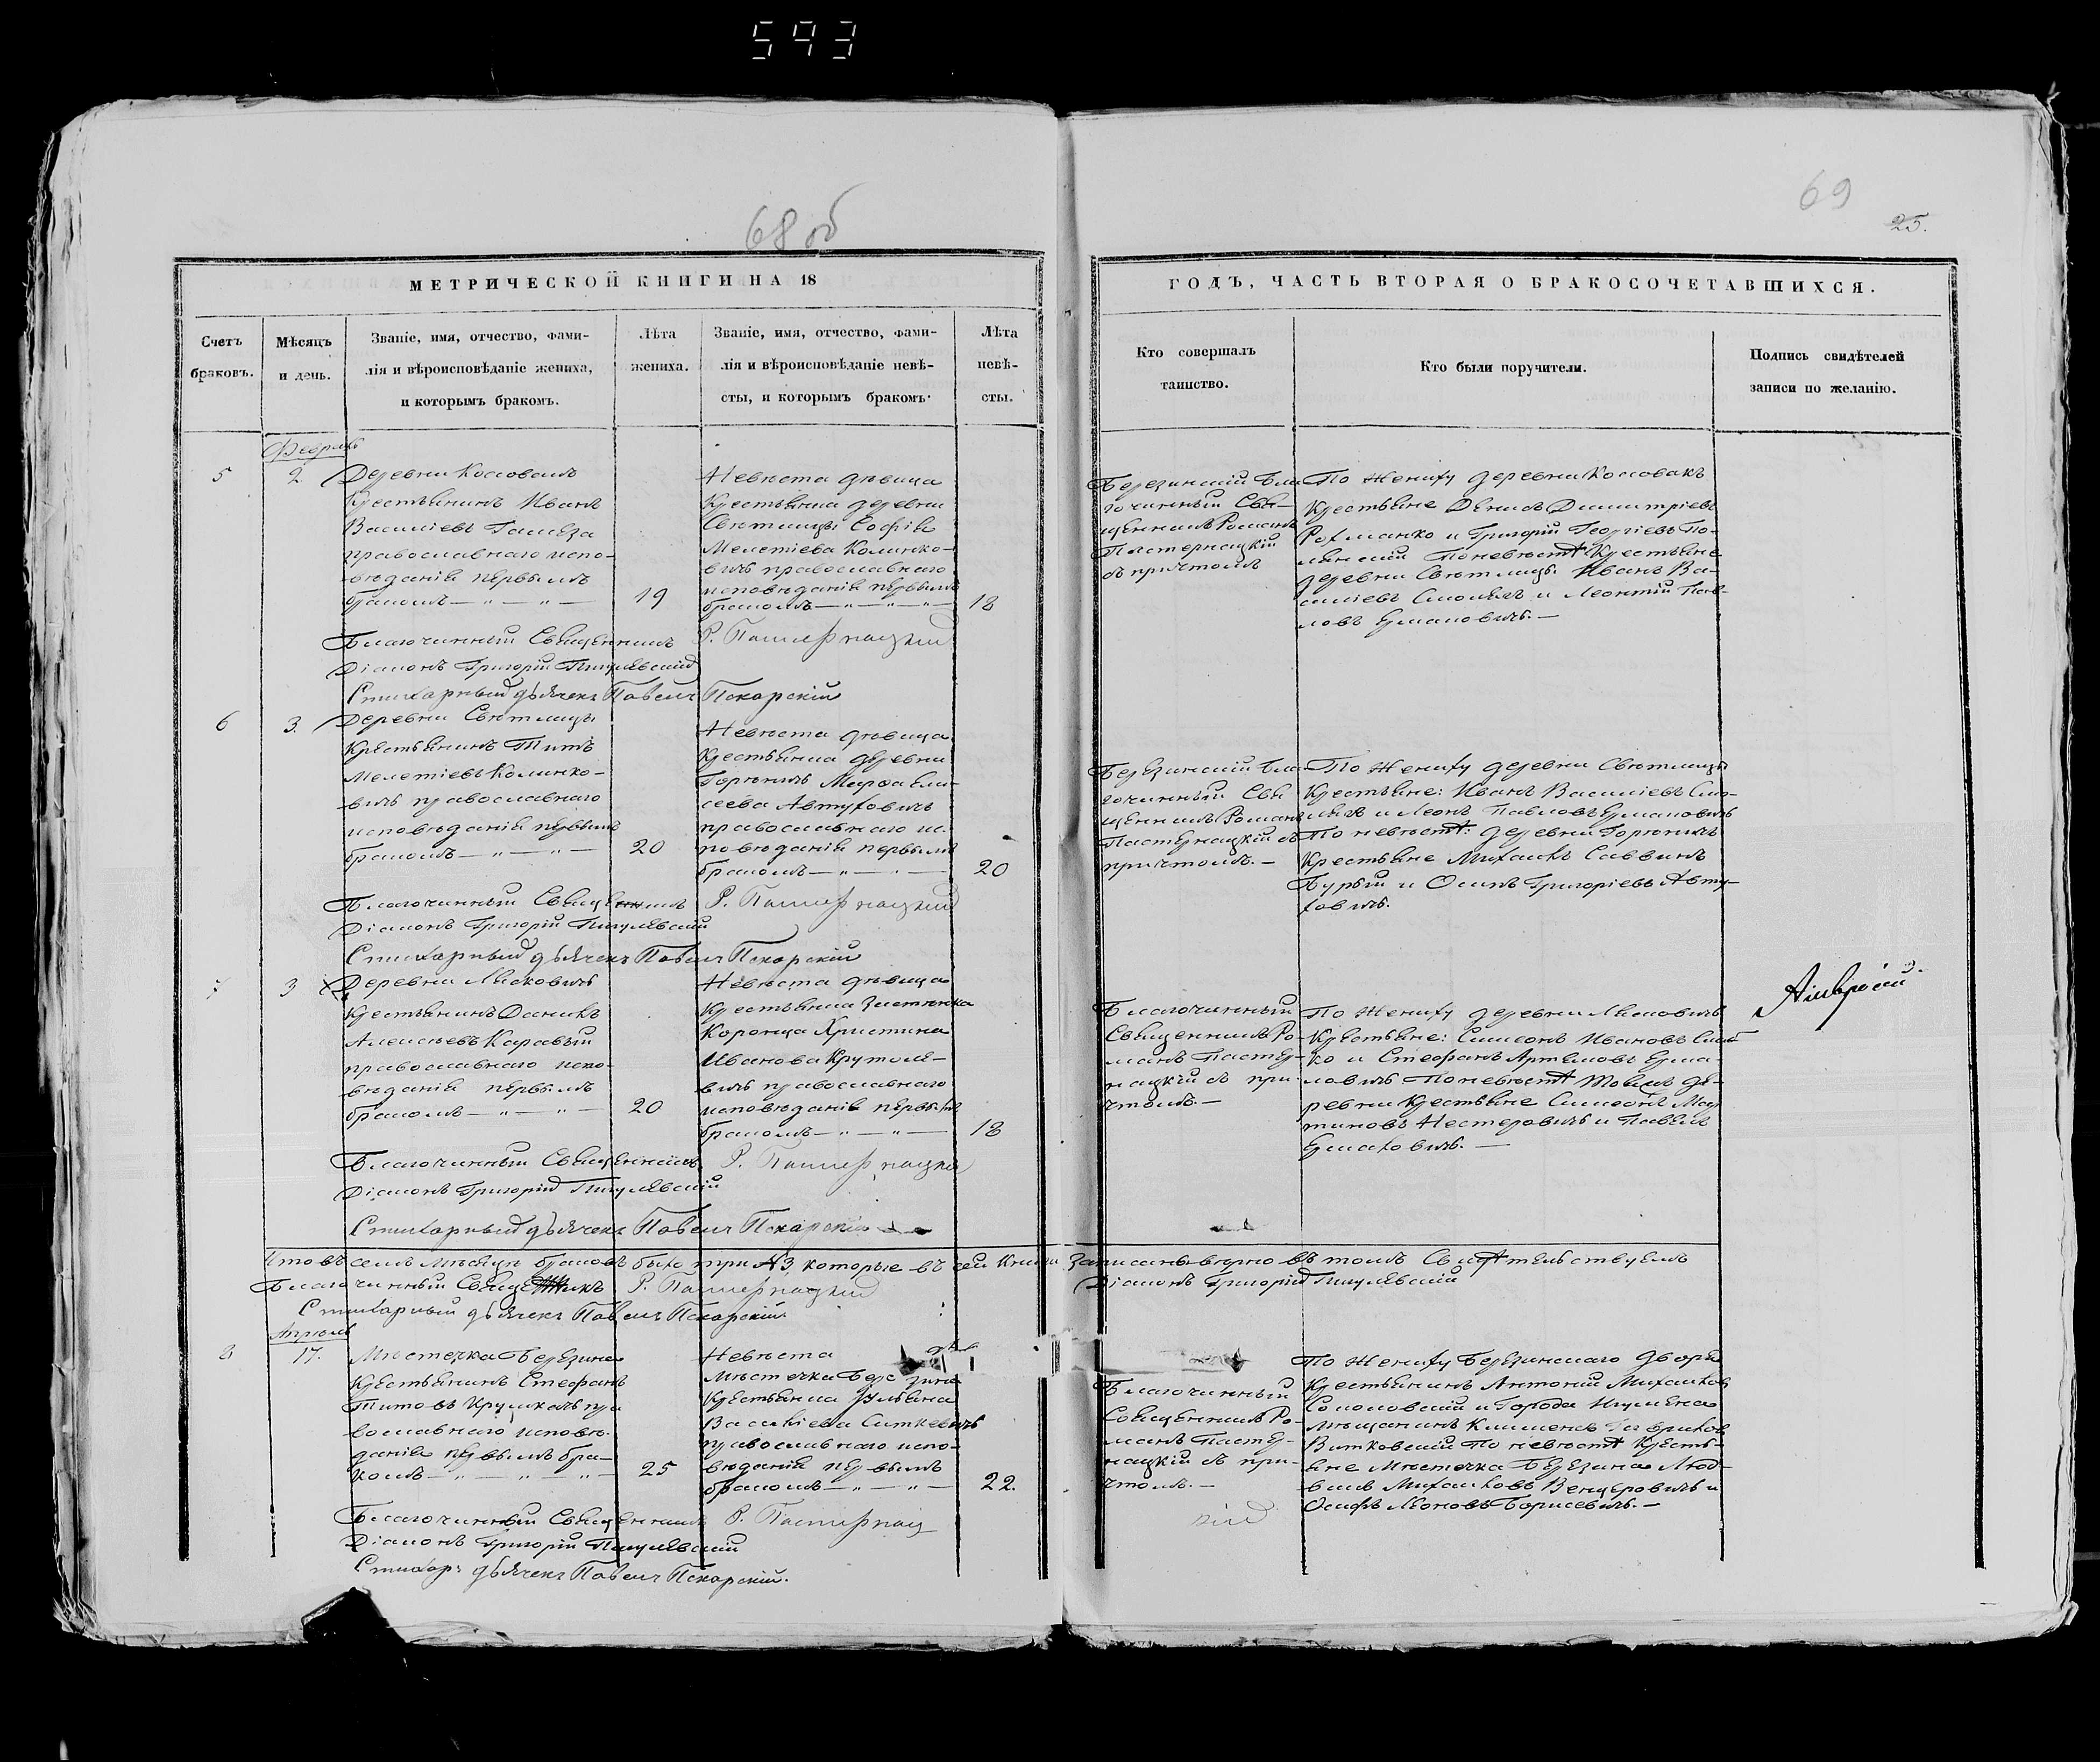 593
68 об
69
25.
МЕТРИЧЕСКОЙ КНИГИ НА 18
ГОДЪ, ЧАСТЬ ВТОРАЯ О БРАКОСОЧЕТАВШИХСЯ.
Счетъ
браковъ.
Мѣсяцъ
и день.
Званіе, имя, отчество, фами-
лія и вѣроисповѣданіе жениха,
и которымъ бракомъ.
Лѣта
жениха.
Званіе, имя, отчество, фами-
лія и вѣроисповѣданіе невѣ-
сты, и которымъ бракомъ.
Лѣта
невѣ-
сты.
Кто совершалъ
таинство.
Кто были поручители.
Подпись свидѣтелей
записи по желанію.
Февраль
5
2
Деревни
Крестьянинъ Иванъ
Василіевъ
православнаго испо-
вѣданія первымъ
бракомъ — „ — „ —
19
Невѣста дѣвица
Крестьянка деревни
Свѣтлицы Софія
Мелетіева Климко-
вичъ православнаго
исповѣданія первымъ
бракомъ — „ — „ —
18
Березинскій Бла-
гочинный Свя-
щенникъ Романъ
Пастернацкій
съ причтомъ
По жениху деревни
Крестьяне Денисъ Димитріевъ
и Григорій Георгіевъ По-
По невѣстѣ Крестьяне
деревни Свѣтлицы. Иванъ Ва-
силіевъ и Леонтій Пав-
ловъ Ермаковичъ. —
Благочинный Священникъ Р. Пастернацкій
Діаконъ Григорій Пигулевскій
Стихарный дьячекъ Павелъ Пекарскій
6
3.
Деревни Свѣтлицы
Крестьянинъ Титъ
Мелетіевъ Климко-
вичъ православнаго
исповѣданія первымъ
бракомъ — „ — „ —
20
Невѣста дѣвица
Крестьянка деревни
Марфа Ели-
сеева Автуховичъ
православнаго ис-
повѣданія первымъ
бракомъ — „ — „ —
20
Березинскій Бла-
гочинный Свя
щенникъ Романъ
Пастернацкій съ
причтомъ. —
По жениху деревни Свѣтлицы
Крестьяне: Иванъ Василіевъ
и Леонъ Павловъ Ермаковичъ
По невѣстѣ: деревни
Крестьяне Михаилъ Саввинъ
Бурый и Осипъ Григоріевъ Авту-
ховичъ.
Благочинный Священникъ Р. Пастернацкій
Діаконъ Григорій Пигулевскій
Стихарный дьячекъ Павелъ Пекарскій
7
3
Деревни
Крестьянинъ Даніилъ
Алексѣевъ Каравый
православнаго испо-
вѣданія первымъ
бракомъ — „ — „ —
20
Невѣста дѣвица
Крестьянка Застѣнка
Христина
Иванова
православнаго
исповѣданія первымъ
бракомъ — „ — „ —
18
Благочинный
Священникъ Ро-
манъ Пастер-
нацкій съ при-
чтомъ. —
По жениху деревни
Крестьяне: Симеонъ Ивановъ
и Стефанъ Артемовъ Ерма-
ковичъ По невѣстѣ де-
ревни Крестьяне Симеонъ Мар
тиновъ Нестеровичъ и Павелъ
Ермаковичъ. —
Амвросій
Благочинный Священникъ Р. Пастернацкій
Діаконъ Григорій Пигулевскій
Стихарный дьячекъ Павелъ Пекарскій
Что въ семъ мѣсяцѣ браковъ было три №3, которые въ сей Книги записаны вѣрно въ томъ Свидѣтельствуемъ
Благочинный Священникъ Р. Пастернацкій Діаконъ Григорій Пигулевскій
Стихарный дьячекъ Павелъ Пекарскій
Апрѣль
8
17.
Мѣстечка Березина
Крестьянинъ Стефанъ
Титовъ пра
вославнаго исповѣ-
данія первымъ бра-
комъ — „ — „ —
25
Невѣста
Мѣстечка Березина
Крестьянка Ульяна
Василіева Ситкевичъ
православнаго испо-
вѣданія первымъ
бракомъ — „ — „ —
22.
Благочинный
Священникъ Ро-
манъ Пастер-
нацкій съ при-
чтомъ. —
По жениху Березинскаго двора
Крестьянинъ Антоній Михайловъ
Соколовскій и Города Игумена
мѣщанинъ
Витковскій По невѣстѣ Кресть-
яне Мѣстечка Березина Люд-
вигъ Михайловъ и
Осифъ Леоновъ Борисевичъ. —
Благочинный Священникъ Р. Пастернац
кій
Діаконъ Григорій Пигулевскій
Стихар. дьячекъ Павелъ Пекарскій.